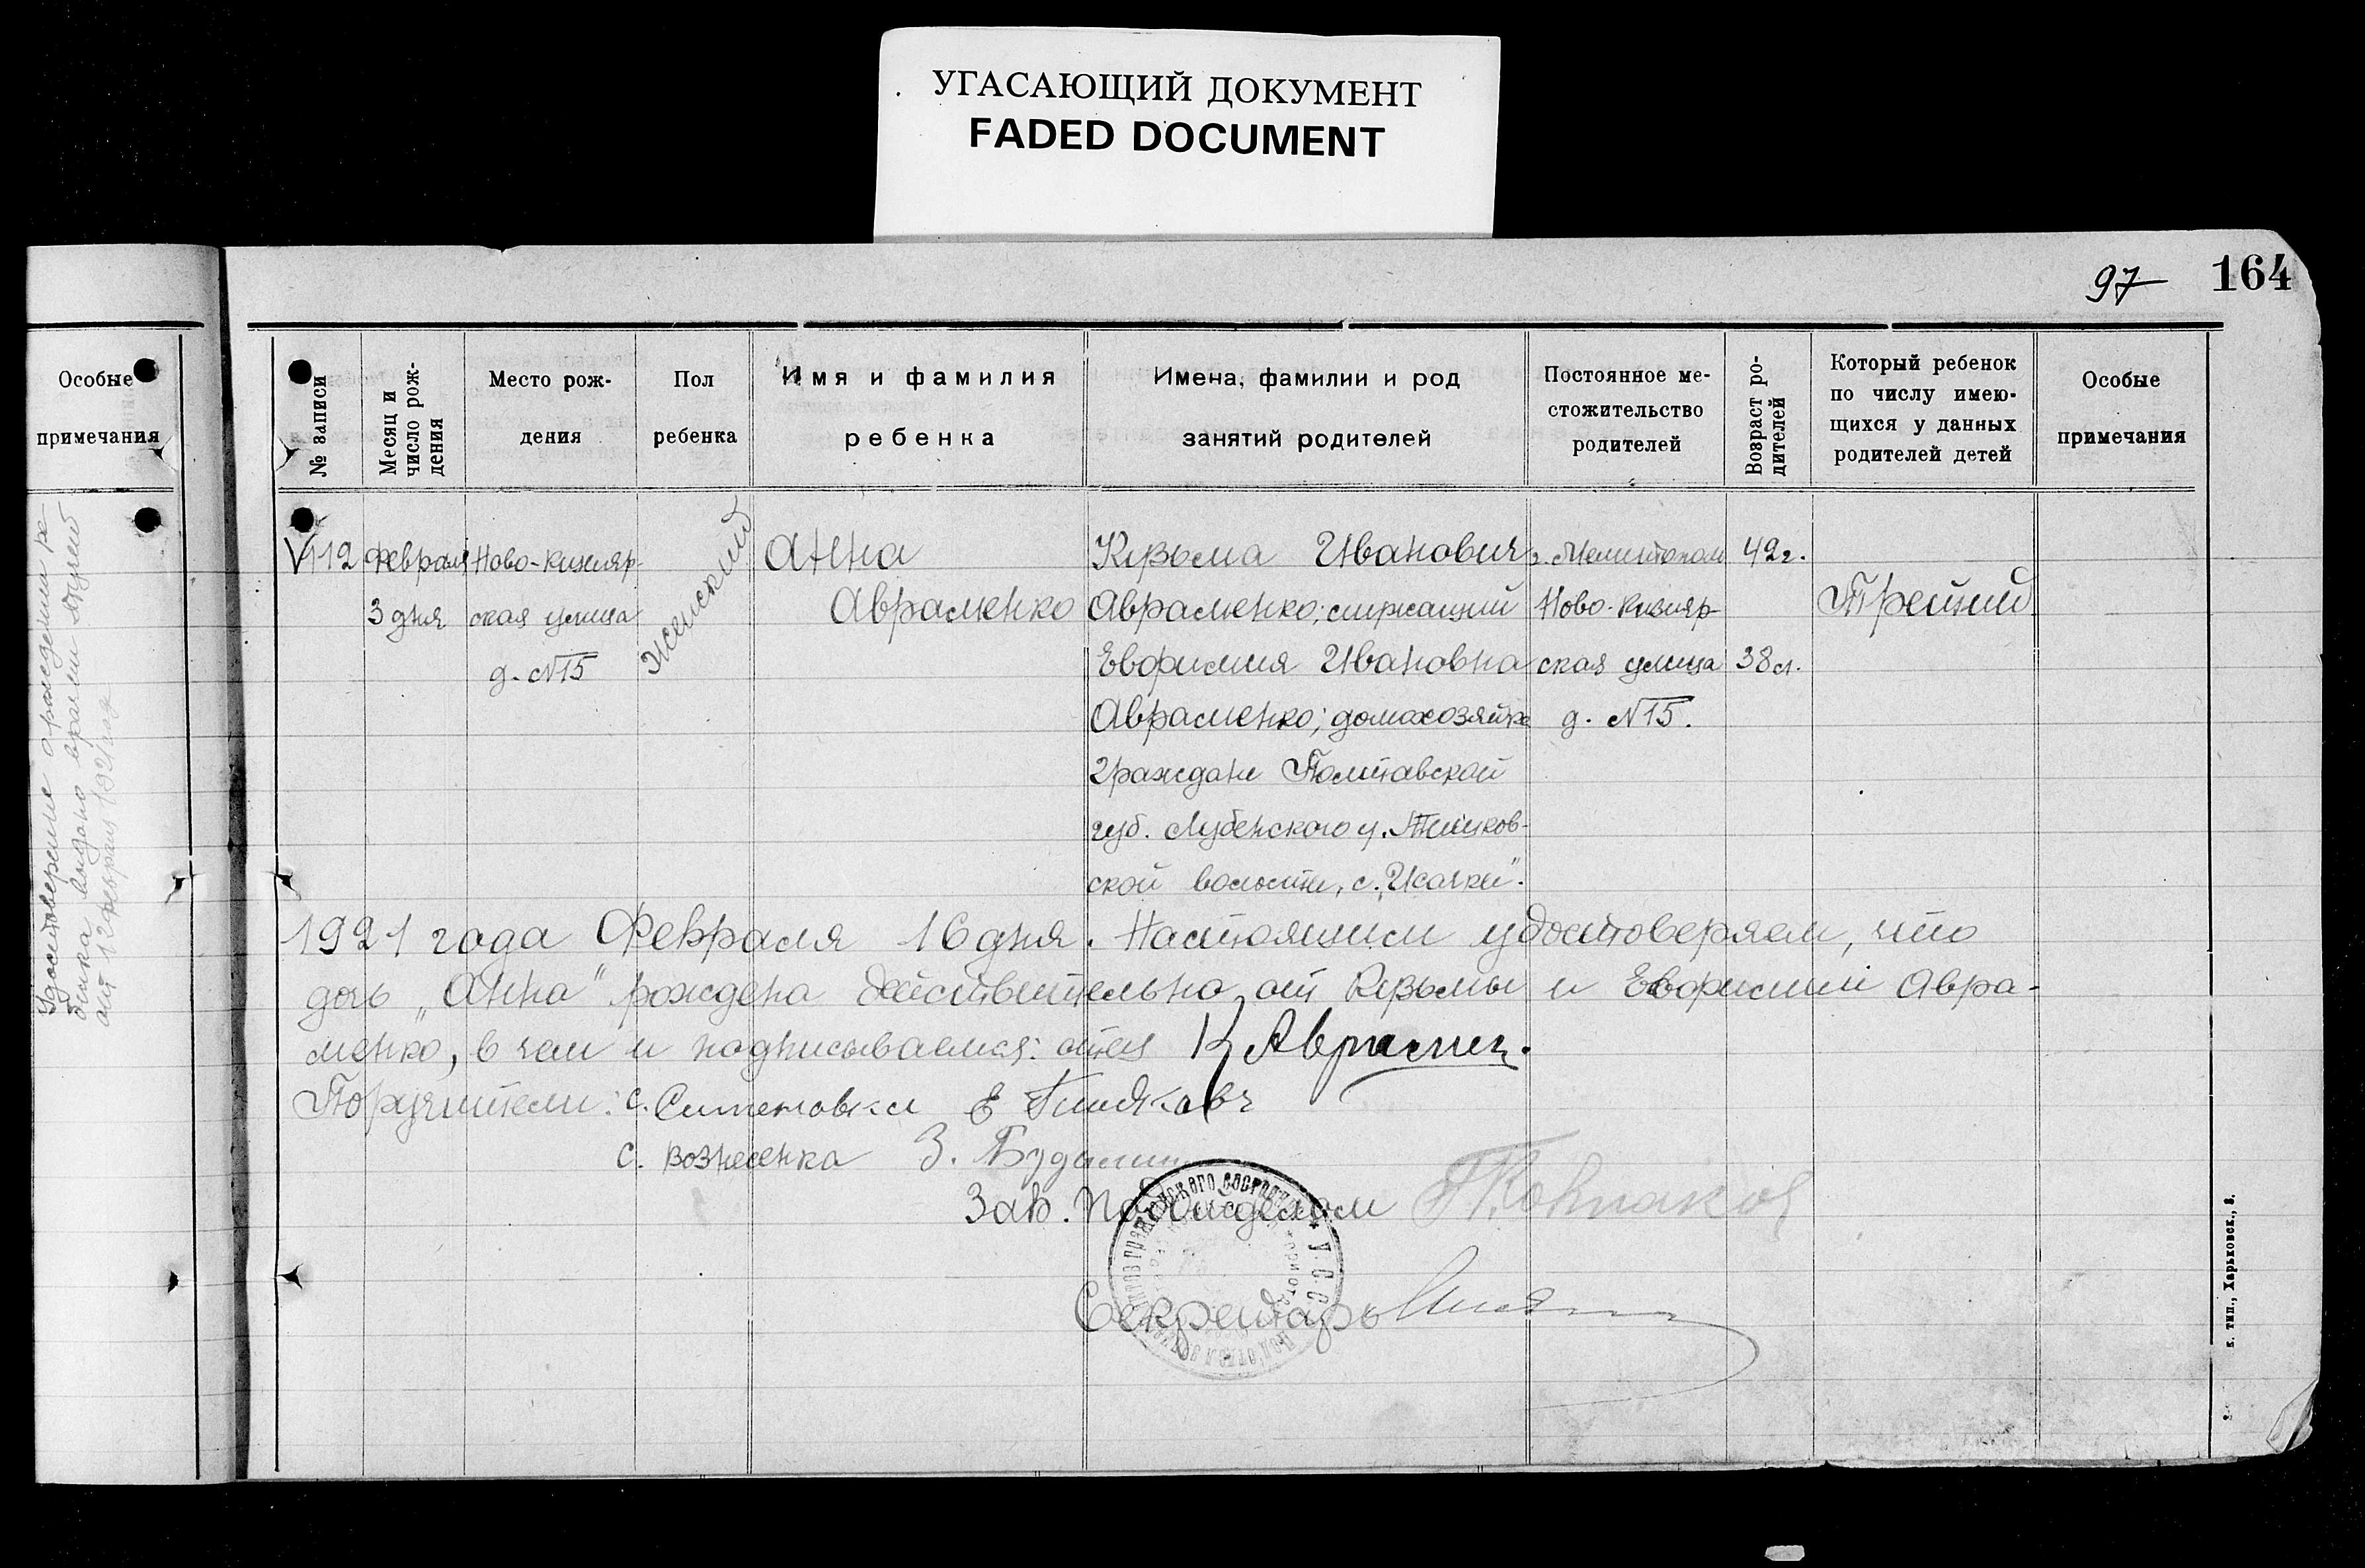 УГАСАЮЩИЙ ДОКУМЕНТ
FADED DOCUMENT
97 164
Особые
примечания
Удостоверение о рождении ре-
бенка выдано врачем
от 12 февраля 1921 года
№ записи
Месяц и
число рож-
дения
Место рож-
дения
Пол
ребенка
Имя и фамилия
ребенка
Имена, фамилии и род
занятий родителей
Постоянное ме-
стожительство
родителей
Возраст ро-
дителей
Который ребенок
по числу имею-
щихся у данных
родителей детей
Особые
примечания
V112
Февраля
3 дня
Ново-Кизияр-
ская улица
д. №15
Женский
Анна
Авраменко
Кузьма Иванович
Авраменко; служащий
Евфимия Ивановна
Авраменко; домохозяйка
граждане Полтавской
губ. Лубенского у.
ской волости, с. „Исачки".
г. Мелитополь
Ново-Кизияр-
ская улица
д. №15.
42 г.
38 л.
Третий
1921 года Февраля 16 дня. Настоящим удостоверяем, что
дочь „Анна" рождена действительно от Кузьмы и Евфимии Авра-
менко, в чем и подписываемся: отец К Авраменк.
Поручители: с. Е
с. Вознесенка З.
Зав. Подотделом
Секретарь
к. тип., Харьковск., 8.